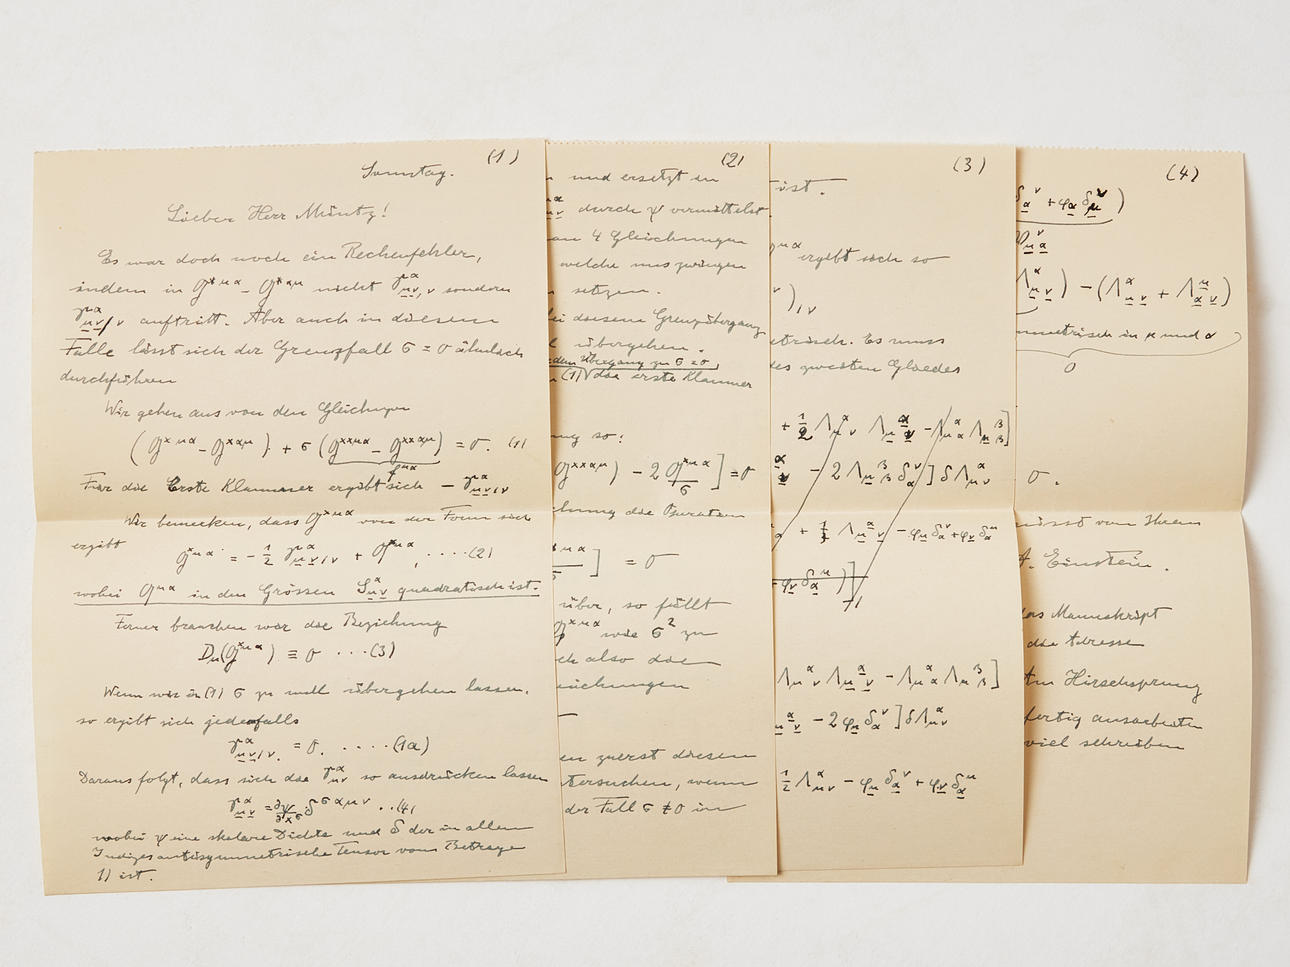 (1)
Sonntag.
Lieber Herr Müntz!
Es war doch noch ein Rechenfehler,
indem in G^{*μα} - G^{*αμ} nicht γ^α_{μν,ν} sondern
γ^α_{μν/ν} auftritt. Aber auch in diesem
Falle lässt sich der Grenzfall σ = 0 ähnlich
durchführen
Wir gehen aus von den Gleichungen
(G^{xμα} - G^{xαμ}) + σ (G^{xxμα} - G^{xxαμ}) = 0. (1)
Für die Erste Klammer ergibt sich - γ^α_{μν/ν}
Wir bemerken, dass G^{xμα} von der Form sich
ergibt
G^{xμα} = - 1/2 γ^α_{μν/ν} + G^{xμα}, ....(2)
wobei G^{μα} in den Grössen S^α_{μν} quadratisch ist.
Ferner brauchen wir die Beziehung
D_μ(G^{xμα}) ≡ 0 ...(3)
Wenn wir in (1) σ zu null übergehen lassen,
so ergibt sich jedenfalls
γ^α_{μν/ν} = 0. ....(1a)
Daraus folgt, dass sich die γ^α_{μν} so ausdrücken lassen
γ^α_{μν} = ∂ψ/∂x^σ δ^{σαμν} ..(4)
wobei ψ eine skalare Dichte und δ der in allen
Indizes antisymmetrische Tensor vom Betrage
1) ist.
(2)
und ersetzt in
durch ψ vermittelst
4 Gleichungen
welche uns zwingen
setzen.
diesem Grenzübergang
übergehen.
dem Übergang zu σ = 0
(1) die erste Klammer
so:
G^{xxαμ}) - 2 G^{xμα}/σ ] = 0
die Operation
] = 0
über, so fällt
wie σ² zu
also die
zuerst diesen
untersuchen, wenn
der Fall σ ≠ 0 in
(3)
ist.
ergibt sich so
)_{/ν}
Es muss
des zweiten Gliedes
+ 1/2 Λ_μ^α_ν Λ_μ^α_ν - Λ_μ^α_α Λ_μ^β_β]
- 2 Λ_μ^β_β δ_α^ν ] δ Λ_μ^α_ν
+ 1/2 Λ_μ^α_ν - φ_μ δ_α^ν + φ_ν δ_α^μ
+ φ_ν δ_α^μ )]
Λ_μ^α_ν Λ_μ^α_ν - Λ_μ^α_α Λ_μ^β_β ]
- 2 φ_μ δ_α^ν ] δ Λ_μ^α_ν
1/2 Λ^α_{μν} - φ_μ δ_α^ν + φ_ν δ_α^μ
(4)
δ_α^ν + φ_α δ_μ^ν )
Λ_μ^α_ν ) - (Λ_μ^α_ν + Λ_α^μ_ν )
symmetrisch in μ und α
0
0.
von Ihrem
A. Einstein.
das Manuskript
die Adresse
Am Hirschsprung
fertig ausarbeiten
viel schreiben